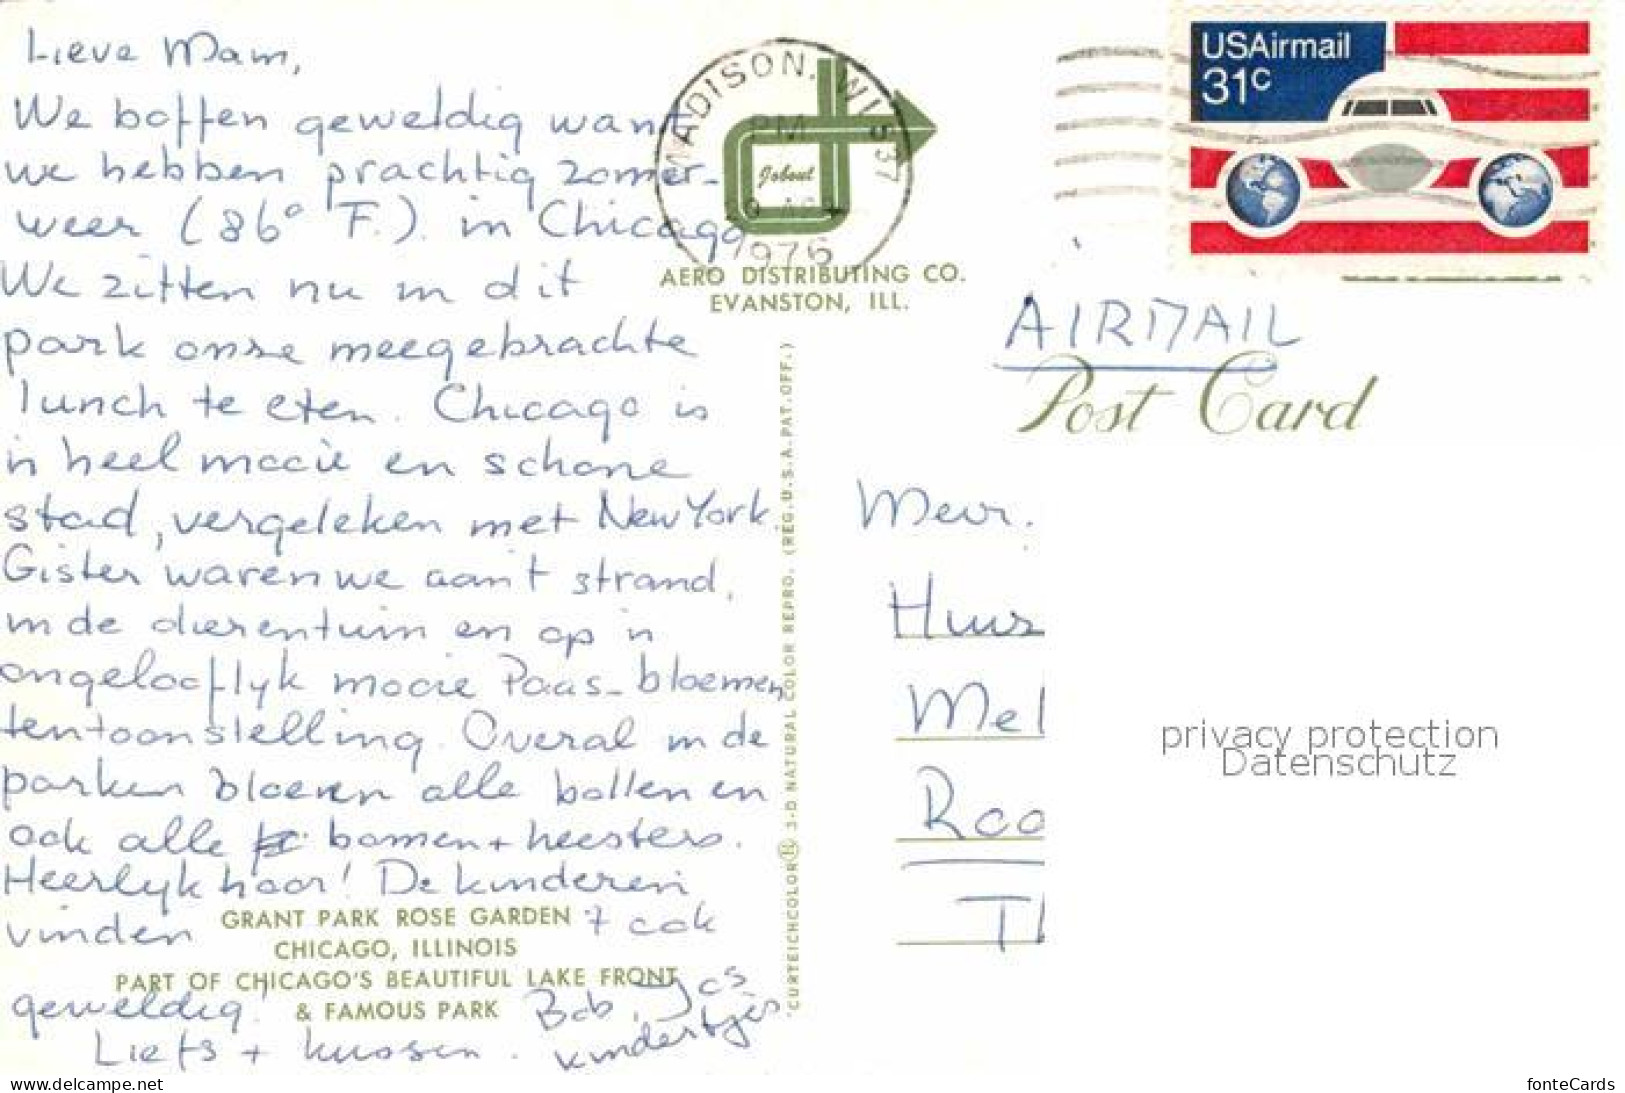 Lieve Mam,
We boffen geweldig want
we hebben prachtig zomer-
weer (86° F.) in Chicago
We zitten nu in dit
park onze meegebrachte
lunch te eten. Chicago is
'n heel mooie en schone
stad, vergeleken met New York.
Gister waren we aan 't strand,
in de dierentuin en op 'n
ongelooflyk mooie Paas-bloemen
tentoonstelling. Overal in de
parken bloeien alle bollen en
ook alle bomen + heesters.
Heerlyk hoor! De kinderen
vinden 't ook
geweldig!
Liefs + kussen.
Bob, Jos
kindertjes
MADISON, WI 537
PM
1976
Jobout
AERO DISTRIBUTING CO.
EVANSTON, ILL.
GRANT PARK ROSE GARDEN
CHICAGO, ILLINOIS
PART OF CHICAGO'S BEAUTIFUL LAKE FRONT
& FAMOUS PARK
CURTEICHCOLOR® 3-D NATURAL COLOR REPRO. (REG. U.S.A. PAT. OFF.)
USAirmail
31c
AIRMAIL
Post Card
Mevr.
Huis
Mel
Roo
Th
privacy protection
Datenschutz
www.delcampe.net
fonteCards